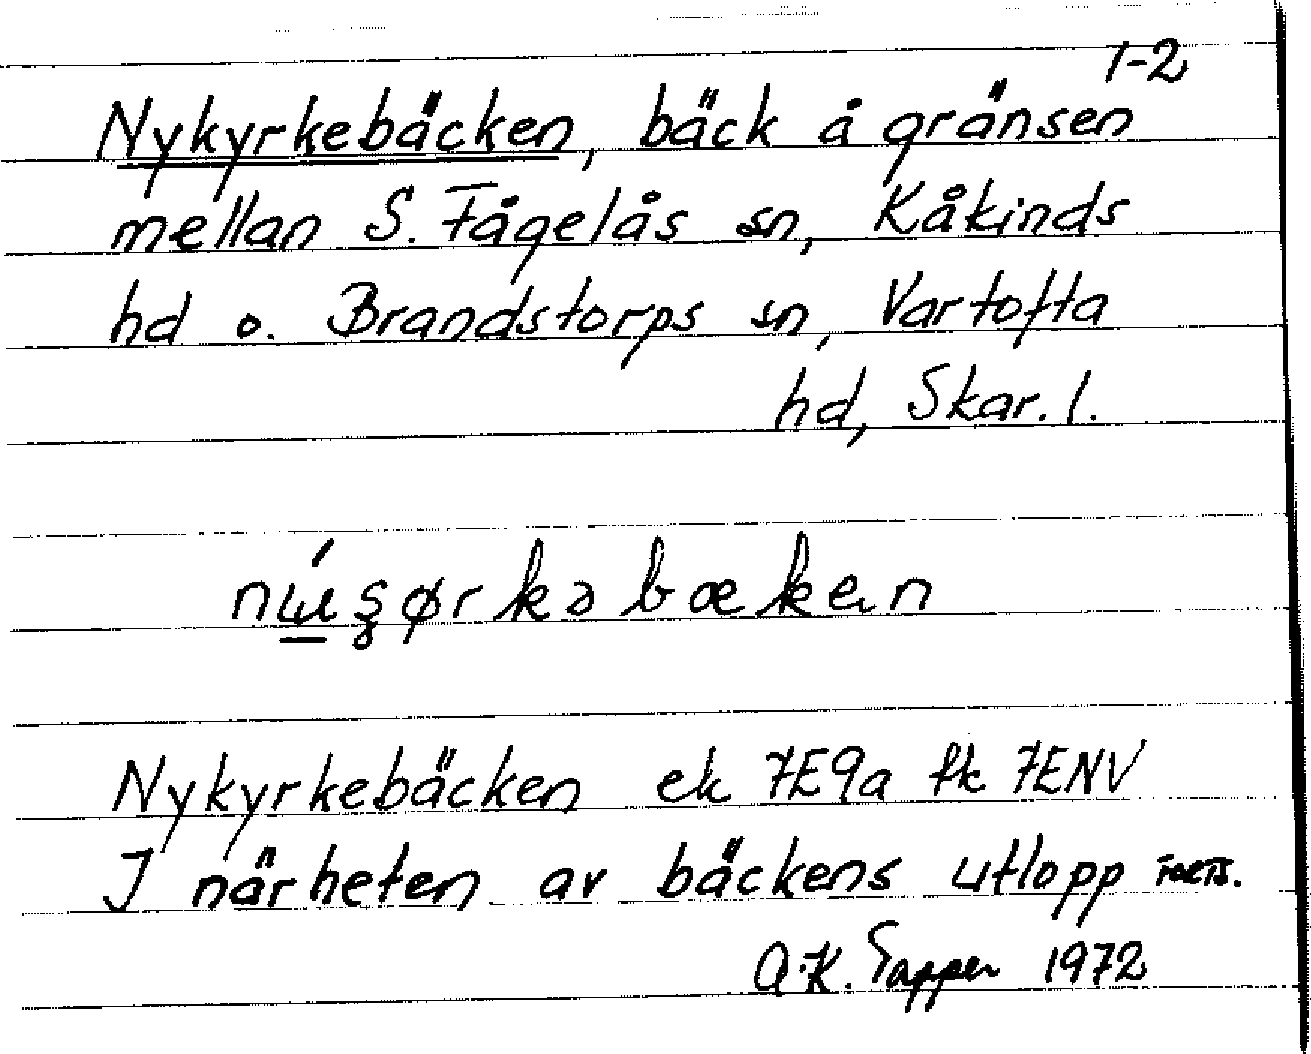 1-2
Nykyrkebäcken, bäck å gränsen
mellan S. Fågelås sn, Kåkinds
hd o. Brandstorps sn, Vartofta
hd, Skar. l.
Nykyrkebäcken ek 7E9a fk 7ENV
I närheten av bäckens utlopp FORTS.
A.K. Tapper 1972